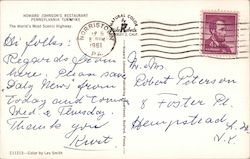 HOWARD JOHNSON'S RESTAURANT
PENNSYLVANIA TURNPIKE
The World's Most Scenic Highway
NORRISTOWN
1961
PA.
Hi folks:
Regards from
here. Please save
Daily News from
today and
Wed & Thursday.
Thank you
Kurt
Mr. & Mrs.
Robert Peterson
8 Foster Pl.
Hempstead, L.I.
N.Y.
C11213 - Color by Les Smith